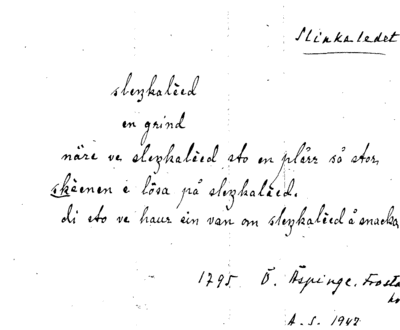 Slinkaledet
slezkalèed
en grind
näre ve slezkalèed sto en plårr så stor,
skèenen è lösa på slezkalèed.
di sto ve haur ein van om slezkalèed å snacka,
1795 Ö. Äspinge. Frosta
A. S. 1942